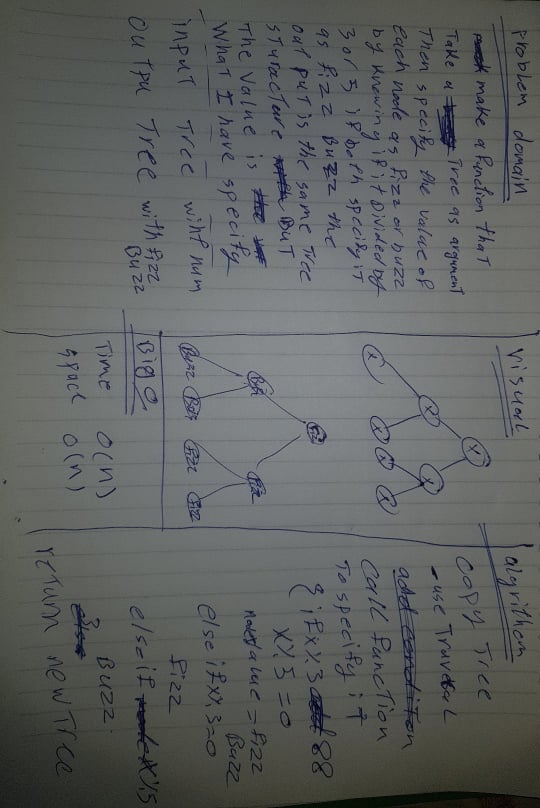 Problem domain
make a function that
Take a Tree as argument
Then specify the value of
each node as fizz or buzz
by knowing if it divided by
3 or 5 if both specify it
as fizz Buzz the
output is the same Tree
sturacture But
the value is
What I have specify
input Tree with num
outpu Tree with fizz
Buzz
Visual
X
X
X
X
X
X
X
Buzz
Fizz
Fizz
Big O
Time O(n)
space O(n)
algrithem
Copy Tree
-use Traversal
Call function
To specify it
{ if x%3 &&
x%5=0
value = fizz
Buzz
else if x%3=0
fizz
else if x%5
Buzz
return new Tree